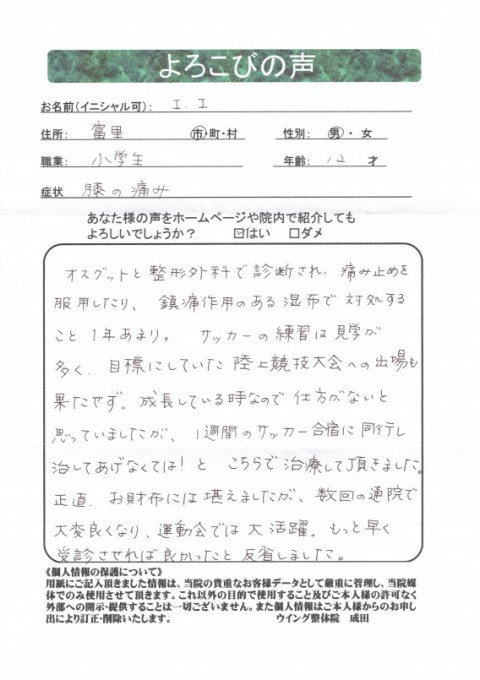 よろこびの声
お名前(イニシャル可): I.I
住所: 富里 市・町・村 性別: 男・女
職業: 小学生 年齢: 12 才
症状 膝の痛み
あなた様の声をホームページや院内で紹介しても
よろしいでしょうか? ☑はい □ダメ
オスグットと整形外科で診断され、痛み止めを
服用したり、鎮痛作用のある湿布で対処する
こと1年あまり。サッカーの練習は見学が
多く、目標にしていた陸上競技大会への出場も
果たせず。成長している時なので仕方がないと
思っていましたが、1週間のサッカー合宿に同行し
治してあげなくては!と こちらで治療して頂きました。
正直、お財布には堪えましたが、数回の通院で
大変良くなり、運動会では大活躍。もっと早く
受診させれば良かったと反省しました。
《個人情報の保護について》
用紙にご記入頂きました情報は、当院の貴重なお客様データとして厳重に管理し、当院媒
体でのみ使用させて頂きます。これ以外の目的で使用すること及びご本人様の許可なく
外部への開示・提供することは一切ございません。また個人情報はご本人様からのお申し
出により訂正・削除いたします。 ウイング整体院 成田